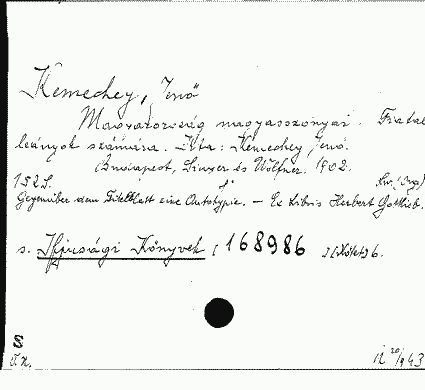 Kemechey, Jenő
Magyarország nagyasszonyai. Fiatal
leányok számára. Irta: Kemechey Jenő.
Budapest, Singer és Wolfner. 1902.
152 S. 8°
Gegenüber dem Titelblatt eine Autotypie. — Ex Libris Herbert Gottlieb.
s. Ifjusági Könyvek [ 168986 ] [Kötet] 6.
S
T.N.